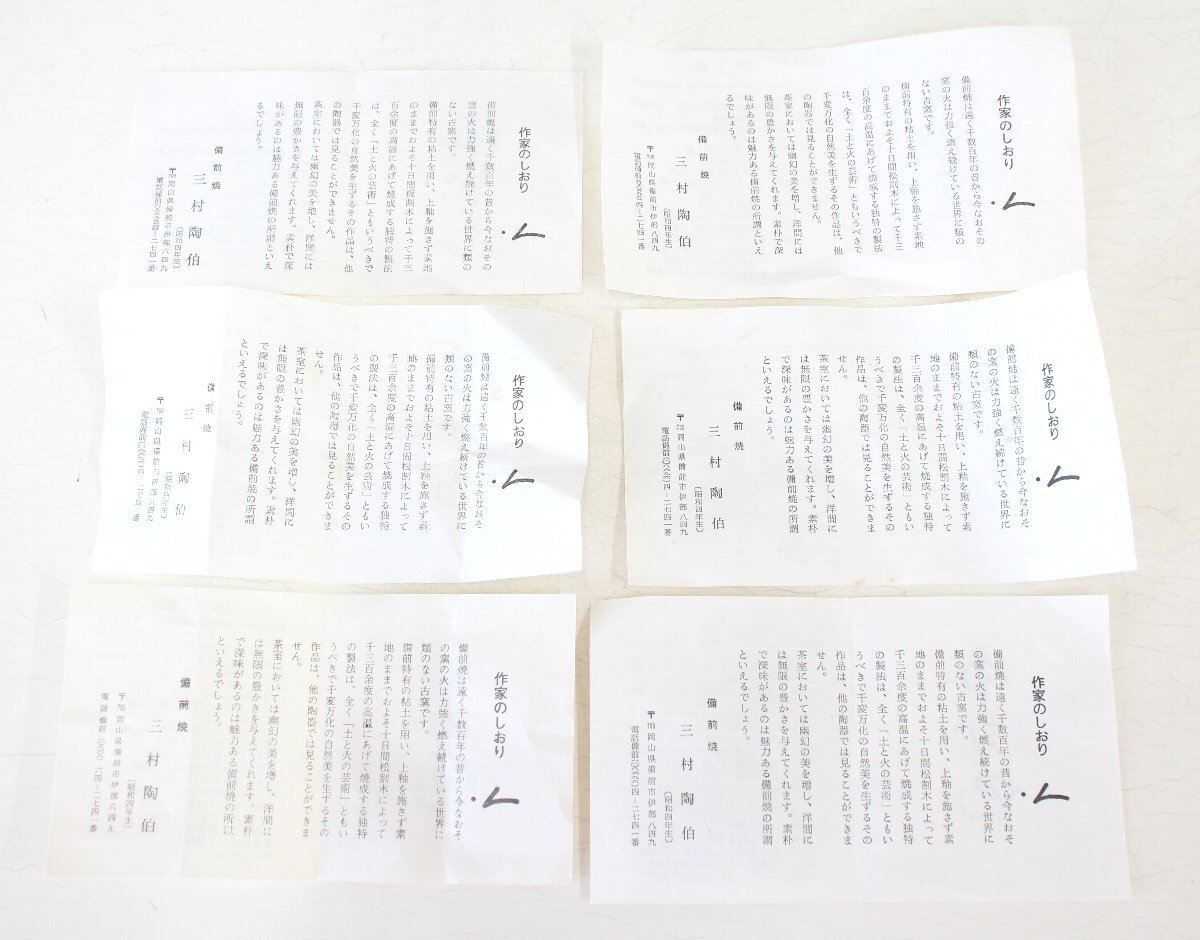 作家のしおり
備前焼は遠く千数百年の昔から今なおその
窯の火は力強く燃え続けている世界に類の
ない古窯です。
備前特有の粘土を用い、上釉を施さず素地
のままでおよそ十日間松割木によって千三
百余度の高温にあげて焼成する独特の製法
は、全く「土と火の芸術」ともいうべきで
千変万化の自然美を生ずるその作品は、他
の陶器では見ることができません。
茶室においては幽幻の美を増し、洋間には
無限の豊かさを与えてくれます。素朴で深
味があるのは魅力ある備前焼の所謂といえ
るでしょう。
備前焼
三村陶伯
(昭和四年生)
〒705 岡山県備前市伊部八四九
電話備前四—二七四一番
作家のしおり
備前焼は遠く千数百年の昔から今なおその
窯の火は力強く燃え続けている世界に類の
ない古窯です。
備前特有の粘土を用い、上釉を施さず素地
のままでおよそ十日間松割木によって千三
百余度の高温にあげて焼成する独特の製法
は、全く「土と火の芸術」ともいうべきで
千変万化の自然美を生ずるその作品は、他
の陶器では見ることができません。
茶室においては幽幻の美を増し、洋間には
無限の豊かさを与えてくれます。素朴で深
味があるのは魅力ある備前焼の所謂といえ
るでしょう。
備前焼
三村陶伯
(昭和四年生)
〒705 岡山県備前市伊部八四九
電話備前四—二七四一番
作家のしおり
備前焼は遠く千数百年の昔から今なおそ
の窯の火は力強く燃え続けている世界に
類のない古窯です。
備前特有の粘土を用い、上釉を施さず素
地のままでおよそ十日間松割木によって
千三百余度の高温にあげて焼成する独特
の製法は、全く「土と火の芸術」ともい
うべきで千変万化の自然美を生ずるその
作品は、他の陶器では見ることができま
せん。
茶室においては幽幻の美を増し、洋間に
は無限の豊かさを与えてくれます。素朴
で深味があるのは魅力ある備前焼の所謂
といえるでしょう。
備前焼
三村陶伯
(昭和四年生)
〒705 岡山県備前市伊部八四九
電話備前四—二七四一番
作家のしおり
備前焼は遠く千数百年の昔から今なおそ
の窯の火は力強く燃え続けている世界に
類のない古窯です。
備前特有の粘土を用い、上釉を施さず素
地のままでおよそ十日間松割木によって
千三百余度の高温にあげて焼成する独特
の製法は、全く「土と火の芸術」ともい
うべきで千変万化の自然美を生ずるその
作品は、他の陶器では見ることができま
せん。
茶室においては幽幻の美を増し、洋間に
は無限の豊かさを与えてくれます。素朴
で深味があるのは魅力ある備前焼の所謂
といえるでしょう。
備前焼
三村陶伯
(昭和四年生)
〒705 岡山県備前市伊部八四九
電話備前四—二七四一番
作家のしおり
備前焼は遠く千数百年の昔から今なおそ
の窯の火は力強く燃え続けている世界に
類のない古窯です。
備前特有の粘土を用い、上釉を施さず素
地のままでおよそ十日間松割木によって
千三百余度の高温にあげて焼成する独特
の製法は、全く「土と火の芸術」ともい
うべきで千変万化の自然美を生ずるその
作品は、他の陶器では見ることができま
せん。
茶室においては幽幻の美を増し、洋間に
は無限の豊かさを与えてくれます。素朴
で深味があるのは魅力ある備前焼の所以
といえるでしょう。
備前焼
三村陶伯
(昭和四年生)
〒705 岡山県備前市伊部八四九
電話備前四—二七四一番
作家のしおり
備前焼は遠く千数百年の昔から今なおそ
の窯の火は力強く燃え続けている世界に
類のない古窯です。
備前特有の粘土を用い、上釉を施さず素
地のままでおよそ十日間松割木によって
千三百余度の高温にあげて焼成する独特
の製法は、全く「土と火の芸術」ともい
うべきで千変万化の自然美を生ずるその
作品は、他の陶器では見ることができま
せん。
茶室においては幽幻の美を増し、洋間に
は無限の豊かさを与えてくれます。素朴
で深味があるのは魅力ある備前焼の所謂
といえるでしょう。
備前焼
三村陶伯
(昭和四年生)
〒705 岡山県備前市伊部八四九
電話備前四—二七四一番